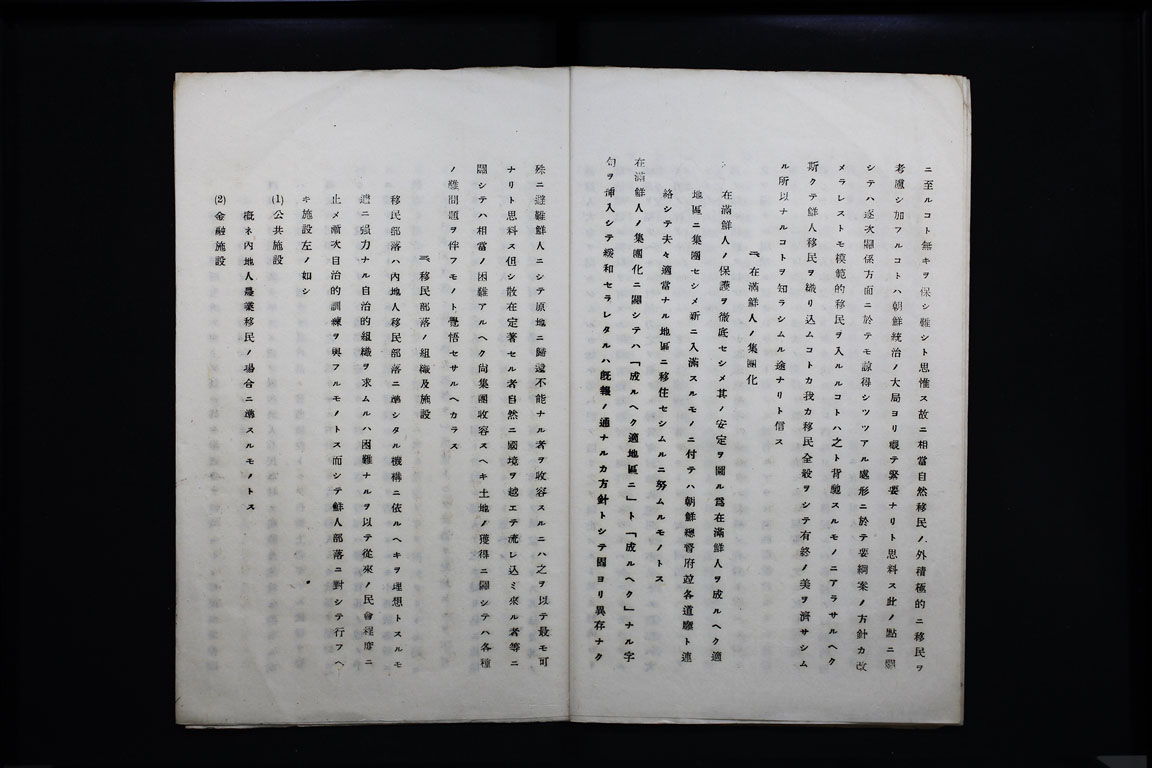 ニ至ルコト無キヲ保シ難シト思惟ス故ニ相當自然移民ノ外積極的ニ移民ヲ
考慮シ加フルコトハ朝鮮統治ノ大局ヨリ觀テ緊要ナリト思料ス此ノ點ニ關
シテハ逐次關係方面ニ於テモ諒得シツツアル處形ニ於テ要綱案ノ方針カ改
メラレストモ模範的移民ヲ入ルルコトハ之ト背馳スルモノニアラサルヘク
斯クテ鮮人移民ヲ織リ込ムコトカ我カ移民全般ヲシテ有終ノ美ヲ濟サシム
ル所以ナルコトヲ知ラシムル途ナリト信ス
二、在滿鮮人ノ集團化
在滿鮮人ノ保護ヲ徹底セシメ其ノ安定ヲ圖ル爲在滿鮮人ヲ成ルヘク適
地區ニ集團セシメ新ニ入滿スルモノニ付テハ朝鮮總督府竝各道廳ト連
絡シテ夫々適當ナル地區ニ移住セシムルニ努ムルモノトス
在滿鮮人ノ集團化ニ關シテハ「成ルヘク適地區ニ」ト「成ルヘク」ナル字
句ヲ挿入シテ緩和セラレタルハ旣報ノ通ナルカ方針トシテ固ヨリ異存ナク
殊ニ避難鮮人ニシテ原地ニ歸還不能ナル者ヲ收容スルニハ之ヲ以テ最モ可
ナリト思料ス但シ散在定著セル者自然ニ國境ヲ越エテ流レ込ミ來ル者等ニ
關シテハ相當ノ困難アルヘク尚集團收容スヘキ土地ノ獲得ニ關シテハ各種
ノ難問題ヲ伴フモノト覺悟セサルヘカラス
三、移民部落ノ組織及施設
移民部落ハ內地人移民部落ニ準シタル機構ニ依ルヘキヲ理想トスルモ
遽ニ强力ナル自治的組織ヲ求ムルハ困難ナルヲ以テ從來ノ民會程度ニ
止メ漸次自治的訓練ヲ與フルモノトス而シテ鮮人部落ニ對シテ行フヘ
キ施設左ノ如シ
(1)公共施設
槪ネ內地人農業移民ノ場合ニ準スルモノトス
(2)金融施設